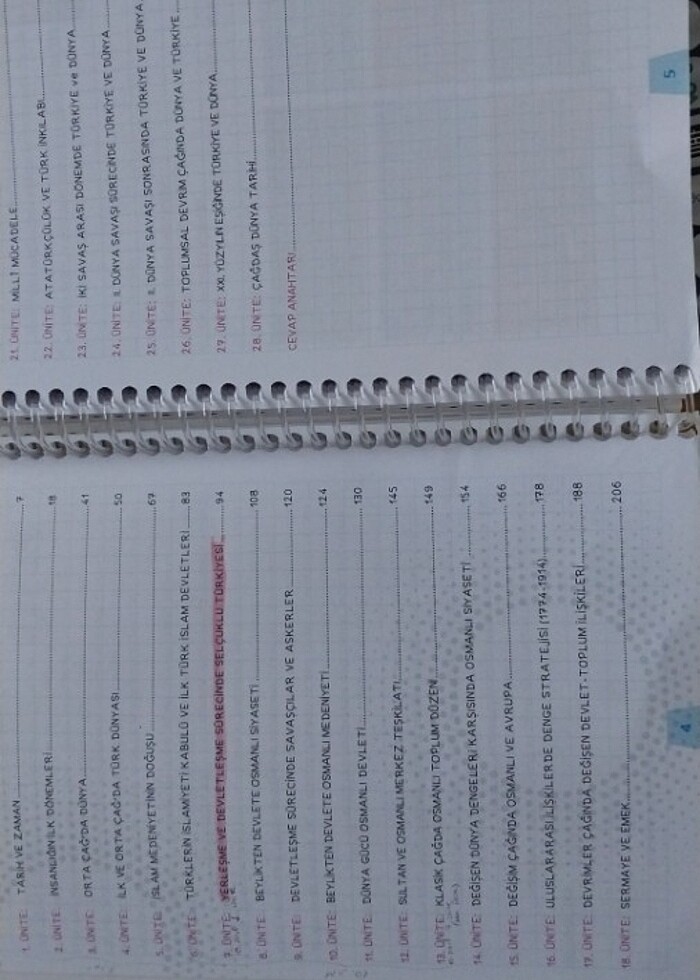 1. ÜNİTE: TARİH VE ZAMAN 7
2. ÜNİTE: İNSANLIĞIN İLK DÖNEMLERİ 18
3. ÜNİTE: ORTA ÇAĞ'DA DÜNYA 41
4. ÜNİTE: İLK VE ORTA ÇAĞ'DA TÜRK DÜNYASI 50
5. ÜNİTE: İSLAM MEDENİYETİNİN DOĞUŞU 67
6. ÜNİTE: TÜRKLERİN İSLAMİYETİ KABULÜ VE İLK TÜRK İSLAM DEVLETLERİ 83
7. ÜNİTE: YERLEŞME VE DEVLETLEŞME SÜRECİNDE SELÇUKLU TÜRKİYESİ 94
8. ÜNİTE: BEYLİKTEN DEVLETE OSMANLI SİYASETİ 108
9. ÜNİTE: DEVLETLEŞME SÜRECİNDE SAVAŞÇILAR VE ASKERLER 120
10. ÜNİTE: BEYLİKTEN DEVLETE OSMANLI MEDENİYETİ 124
11. ÜNİTE: DÜNYA GÜCÜ OSMANLI DEVLETİ 130
12. ÜNİTE: SULTAN VE OSMANLI MERKEZ TEŞKİLATI 145
13. ÜNİTE: KLASİK ÇAĞDA OSMANLI TOPLUM DÜZENİ 149
14. ÜNİTE: DEĞİŞEN DÜNYA DENGELERİ KARŞISINDA OSMANLI SİYASETİ 154
15. ÜNİTE: DEĞİŞİM ÇAĞINDA OSMANLI VE AVRUPA 166
16. ÜNİTE: ULUSLARARASI İLİŞKİLERDE DENGE STRATEJİSİ (1774-1914) 178
17. ÜNİTE: DEVRİMLER ÇAĞINDA DEĞİŞEN DEVLET-TOPLUM İLİŞKİLERİ 188
18. ÜNİTE: SERMAYE VE EMEK 206
4
21. ÜNİTE: MİLLÎ MÜCADELE
22. ÜNİTE: ATATÜRKÇÜLÜK VE TÜRK İNKILABI
23. ÜNİTE: İKİ SAVAŞ ARASI DÖNEMDE TÜRKİYE ve DÜNYA
24. ÜNİTE: II. DÜNYA SAVAŞI SÜRECİNDE TÜRKİYE VE DÜNYA
25. ÜNİTE: II. DÜNYA SAVAŞI SONRASINDA TÜRKİYE VE DÜNYA
26. ÜNİTE: TOPLUMSAL DEVRİM ÇAĞINDA DÜNYA VE TÜRKİYE
27. ÜNİTE: XXI. YÜZYILIN EŞİĞİNDE TÜRKİYE VE DÜNYA
28. ÜNİTE: ÇAĞDAŞ DÜNYA TARİHİ
CEVAP ANAHTARI
5